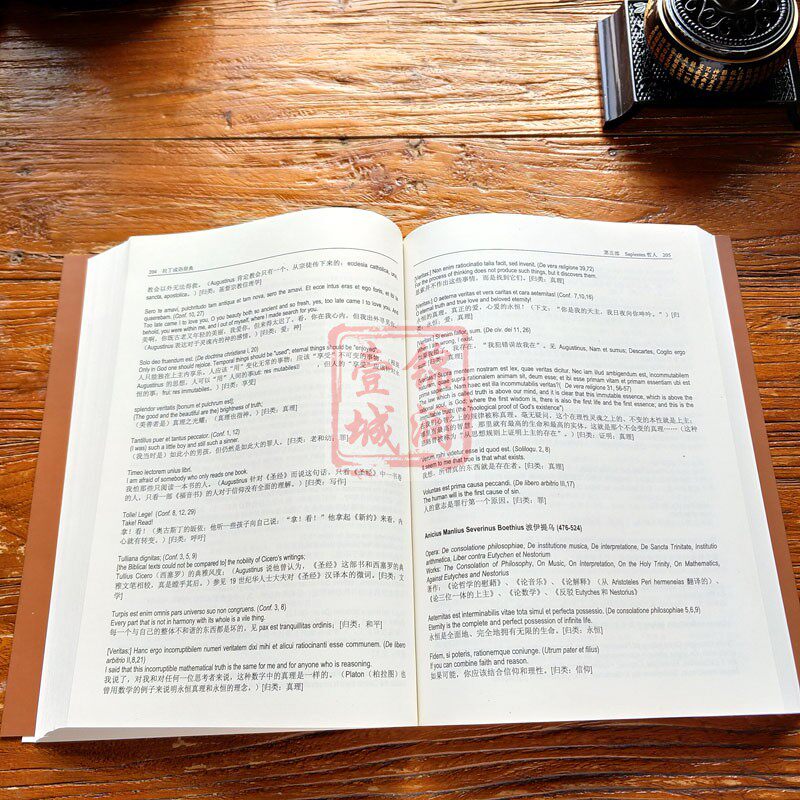 204 拉丁成语辞典
教会以外无法得救。(Augustinus 肯定教会只有一个、从宗徒传下来的: ecclesia catholica, una,
sancta, apostolica。) [归类: 基督宗教信理学]
Sero te amavi, pulchritudo tam antiqua et tam nova, sero the amavi. Et ecce intus eras et ego foris, et ibi te
quaerebam. (Conf. 10, 27)
Too late came I to love you, O you beauty both so ancient and so fresh, yes, too late came I to love you. And
behold, you were within me, and I out of myself, where I made search for you.
(Augustinus 表达对于灵魂内的神的感情。) [归类: 爱; 神]
Solo deo fruendum est. (De doctrina christiana I, 20)
Only in God one should rejoice. Temporal things should be "used"; eternal things should be "enjoyed".
人只能独在上主内享乐。人应该“用”变化无常的事物;
恒的事。frui: res immutabiles.) [归类: 享受]
splendor veritatis [bonum et pulchrum est];
[The good and the beautiful are the] brightness of truth;
(美善者是) 真理之光耀; (真理也指神。) [归类: 真理]
Tantillus puer et tantus peccator. (Conf. 1, 12)
(I was) such a little boy and still such a sinner.
(我当时是) 如此小的男孩, 但仍然是如此大的罪人。[归类: 老和幼, 罪]
Timeo lectorem unius libri.
I am afraid of somebody who only reads one book.
我怕那些只阅读一本书的人。(Augustinus 针对《圣经》而说这句话, 只看《圣经》中一书卷
的人, 只看一部《福音书》的人对于信仰没有全面的理解。) [归类: 写作]
Tolle! Lege! (Conf. 8, 12, 29)
Take! Read!
拿! 看! (奥古斯丁的皈依: 他听一些孩子向自己说: “拿! 看!” 他拿起《新约》来看, 内
心就有转变。) [归类: 呼吁]
Tulliana dignitas; (Conf. 3, 5, 9)
[the Biblical texts could not be compared to] the nobility of Cicero's writings;
Tullius Cicero (西塞罗) 的典雅风度; (Augustinus 说他曾认为, 《圣经》这部书和西塞罗的典
雅文笔相较, 真是瞠乎其后。) 参见 19 世纪华人士大夫对《圣经》汉译本的微词。[归类: 文
学]
Turpis est enim omnis pars universo suo non congruens. (Conf. 3, 8)
Every part that is not in harmony with its whole is a vile thing.
每一个与自己的整体不和谐的东西都是坏的。见 pax est tranquillitas ordinis; [归类: 和平]
[Veritas:] Hanc ergo incorruptibilem numeri veritatem dixi mihi et alicui ratiocinanti esse communem. (De libero
arbitrio II,8,21)
I said that this incorruptible mathematical truth is the same for me and for anyone who is reasoning.
我说了, 对我和对任何一位思考者来说, 这种数字中的真理是一样的。(Platon (柏拉图) 也
曾用数学的例子来说明永恒真理和永恒的理念。) [归类: 真理]
第三部 Sapientes 哲人 205
[Veritas:] Non enim ratiocinatio talia facit, sed invenit. (De vera religione 39,72)
For the process of thinking does not produce such things, but it discovers them.
思索并不作出这些事情, 而是找到它们。[归类: 真理]
[Veritas:] O aeterna veritas et vera caritas et cara aeternitas! (Conf. 7,10,16)
O eternal truth and true love and beloved eternity!
永恒的真理, 真正的爱, 心爱的永恒! (下文: “你是我的天主, 我日夜向你呻吟。”) [归
类: 永恒, 爱, 真理]
[Veritas:] Si enim fallor, sum. (De civ. dei 11, 26)
When I'm wrong, I exist.
见 Augustinus, Nam et sumus; Descartes, Cogito ergo
The law which is called truth is above our mind, and it is clear that this immutable essence, which is above the
mind, is God; where the first wisdom is, there is also the first life and the first essence; and this is the
immutable truth (the "noological proof of God's existence")
Verum mihi videtur esse id quod est. (Soliloqu. 2, 8)
It seems to me that true is that what exists.
我想, 所谓真的东西就是存在者。[归类: 真理]
Voluntas est prima causa peccandi. (De libero arbitrio III,17)
The human will is the first cause of sin.
人的意志是罪行第一个原因。[归类: 罪]
Anicius Manlius Severinus Boethius 波伊提乌 (476-524)
Opera: De consolatione philosophiae, De institutione musica, De interpretatione, De Sancta Trinitate, Institutio
arithmetica, Liber contra Eutychen et Nestorium
Works: The Consolation of Philosophy, On Music, On Interpretation, On the Holy Trinity, On Mathematics,
Against Eutyches and Nestorius
著作: 《论哲学的慰藉》、《论音乐》、《论解释》(从 Aristoteles Peri hermeneias 翻译的)、
《论三位一体的上主》、《论数学》、《反驳 Eutyches 和 Nestorius》
Aeternitas est interminabilis vitae tota simul et perfecta possessio. (De consolatione philosophiae 5,6,9)
Eternity is the complete and perfect possession of infinite life.
永恒是全面地、完全地拥有无限的生命。[归类: 永恒]
Fidem, si poteris, rationemque coniunge. (Utrum pater et filius)
If you can combine faith and reason.
如果可能, 你应该结合信仰和理性。[归类: 信仰]